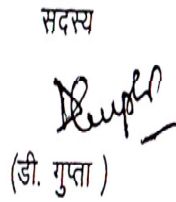 सदस्य
(डी. गुप्ता )